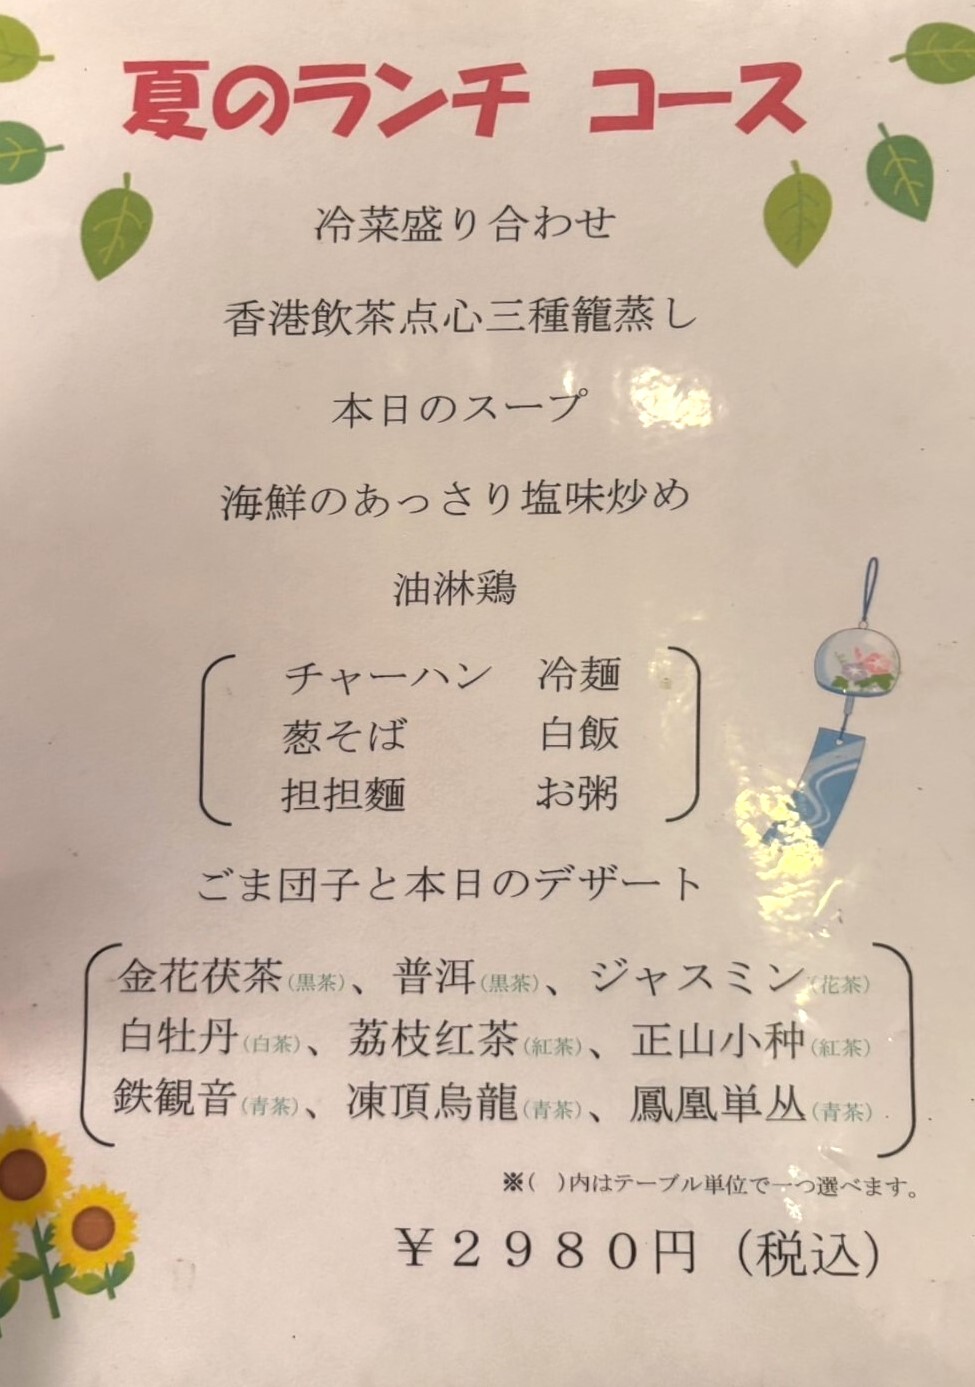 夏のランチ コース
冷菜盛り合わせ
香港飲茶点心三種籠蒸し
本日のスープ
海鮮のあっさり塩味炒め
油淋鶏
チャーハン 冷麺
葱そば 白飯
担担麵 お粥
ごま団子と本日のデザート
金花茯茶(黒茶)、普洱(黒茶)、ジャスミン(花茶)
白牡丹(白茶)、荔枝红茶(紅茶)、正山小种(紅茶)
鉄観音(青茶)、凍頂烏龍(青茶)、鳳凰単丛(青茶)
※( )内はテーブル単位で一つ選べます。
￥２９８０円（税込）